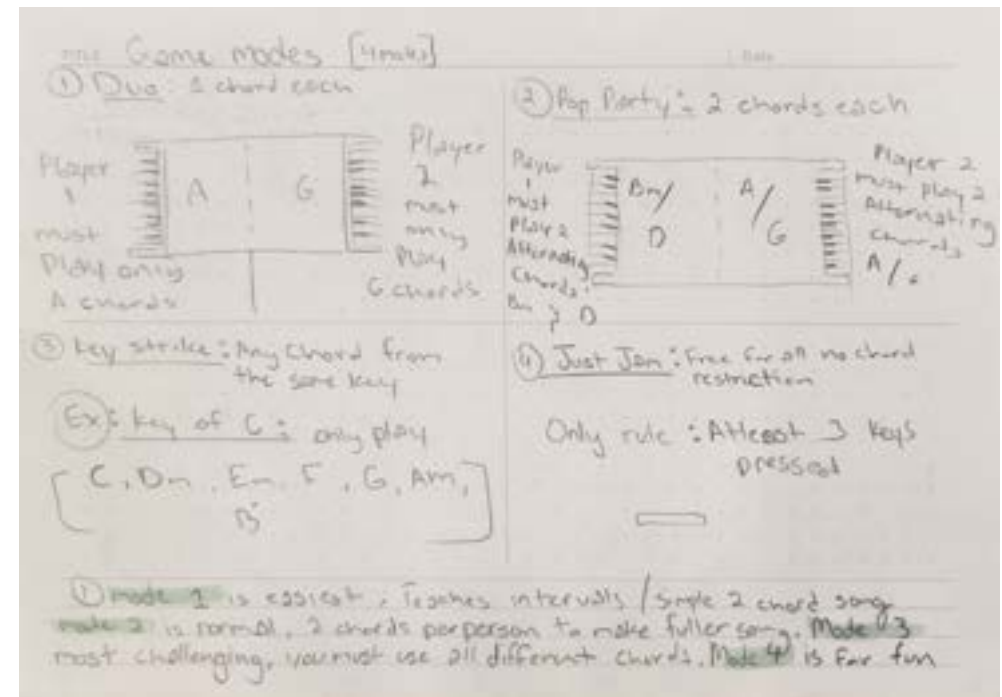 Game modes [4 modes]
① Duo: 1 chord each
Player
1
must
Play only
A chords
A
G
Player
2
must
only
Play
G chords
② Pop Party: 2 chords each
Player
1
must
Play 2
Alternating
Chords:
Bm } D
Bm/
D
A/
G
Player 2
must play 2
Alternating
chords
A/G
③ Key strike: Any chord from
the same key
Ex: key of C: only play
[C, Dm, Em, F, G, Am,
B°]
④ Just Jam: Free for all no chord
restriction
Only rule: Atleast 3 keys
pressed
① Mode 1 is easiest, Teaches intervals / simple 2 chord song
mode 2 is normal, 2 chords per person to make fuller song. Mode 3
most challenging, you must use all different chords. Mode 4 is for fun